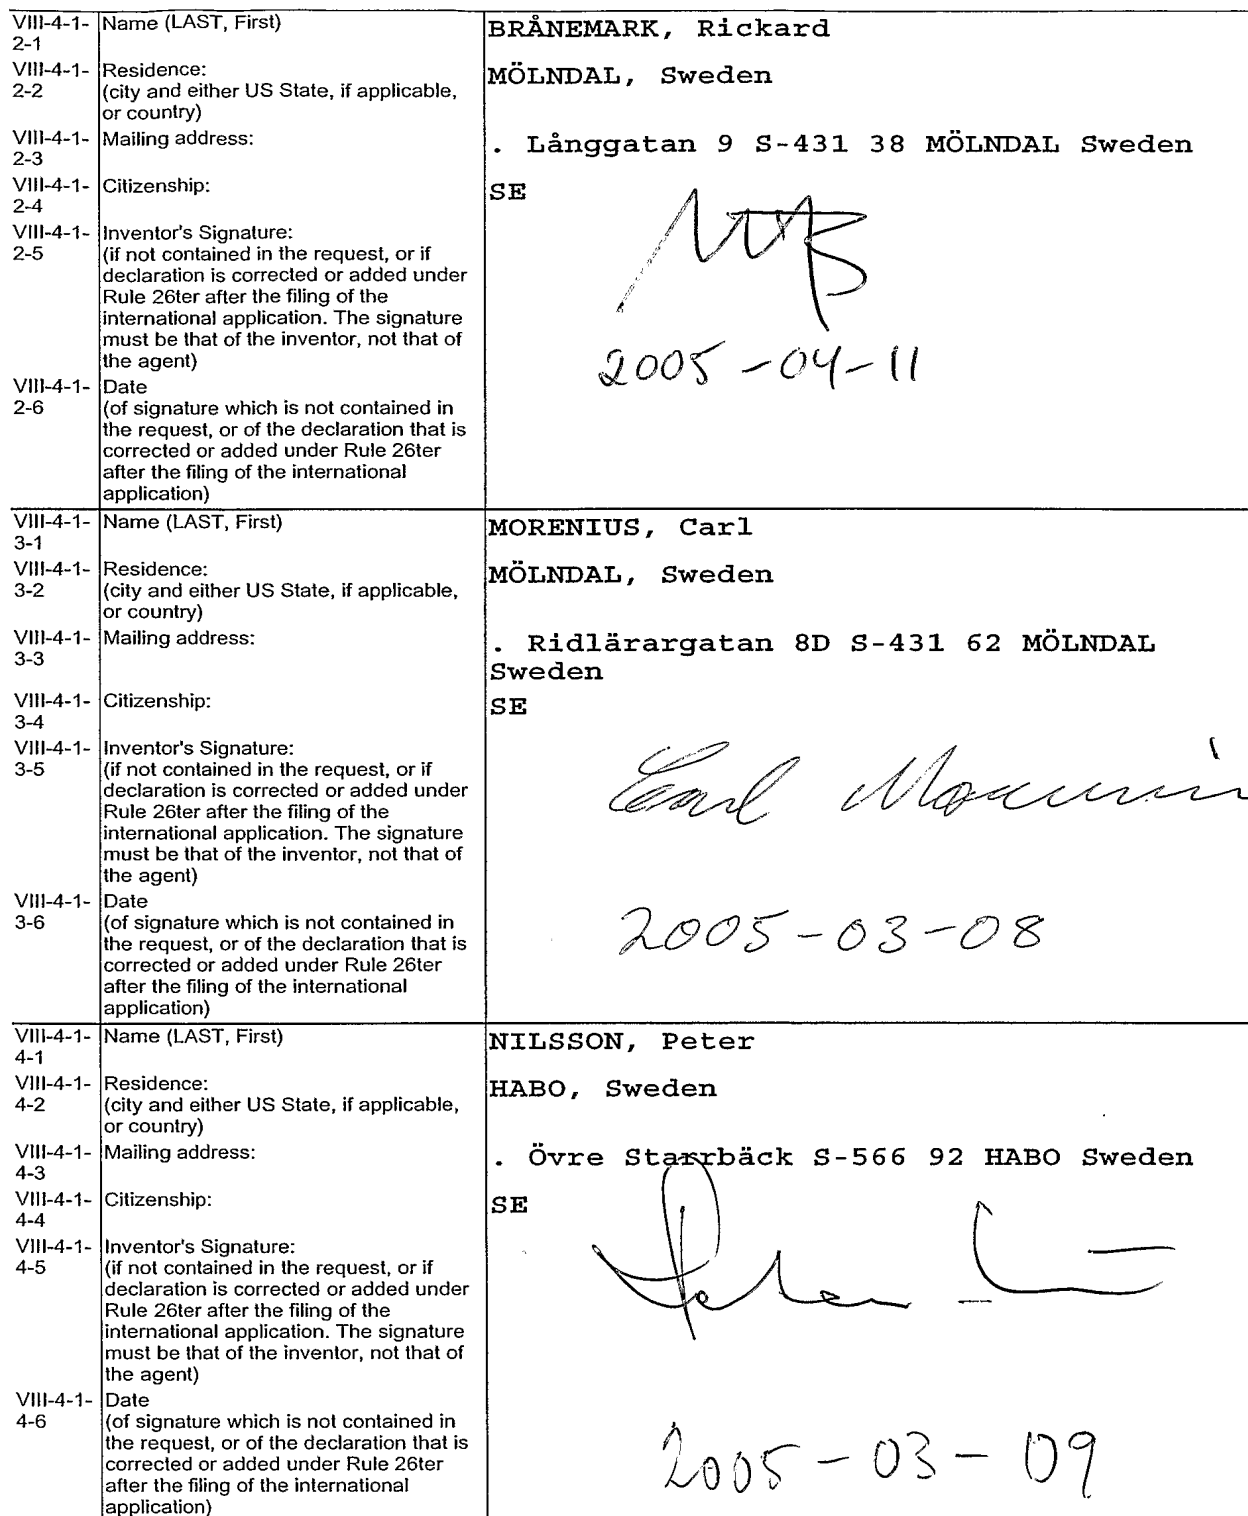 VIII-4-1- Name (LAST, First) BRÅNEMARK, Rickard
2-1
VIII-4-1- Residence: MÖLNDAL, Sweden
2-2 (city and either US State, if applicable,
or country)
VIII-4-1- Mailing address: . Långgatan 9 S-431 38 MÖLNDAL Sweden
2-3
VIII-4-1- Citizenship: SE
2-4
VIII-4-1- Inventor's Signature:
2-5 (if not contained in the request, or if
declaration is corrected or added under
Rule 26ter after the filing of the
international application. The signature
must be that of the inventor, not that of
the agent)
2005-04-11
VIII-4-1- Date
2-6 (of signature which is not contained in
the request, or of the declaration that is
corrected or added under Rule 26ter
after the filing of the international
application)
VIII-4-1- Name (LAST, First) MORENIUS, Carl
3-1
VIII-4-1- Residence: MÖLNDAL, Sweden
3-2 (city and either US State, if applicable,
or country)
VIII-4-1- Mailing address: . Ridlärargatan 8D S-431 62 MÖLNDAL
3-3 Sweden
VIII-4-1- Citizenship: SE
3-4
VIII-4-1- Inventor's Signature:
3-5 (if not contained in the request, or if
declaration is corrected or added under
Rule 26ter after the filing of the
international application. The signature
must be that of the inventor, not that of
the agent)
Carl Morenius
VIII-4-1- Date
3-6 (of signature which is not contained in
the request, or of the declaration that is
corrected or added under Rule 26ter
after the filing of the international
application)
2005-03-08
VIII-4-1- Name (LAST, First) NILSSON, Peter
4-1
VIII-4-1- Residence: HABO, Sweden
4-2 (city and either US State, if applicable,
or country)
VIII-4-1- Mailing address: . Övre Starrbäck S-566 92 HABO Sweden
4-3
VIII-4-1- Citizenship: SE
4-4
VIII-4-1- Inventor's Signature:
4-5 (if not contained in the request, or if
declaration is corrected or added under
Rule 26ter after the filing of the
international application. The signature
must be that of the inventor, not that of
the agent)
VIII-4-1- Date
4-6 (of signature which is not contained in
the request, or of the declaration that is
corrected or added under Rule 26ter
after the filing of the international
application)
2005-03-09